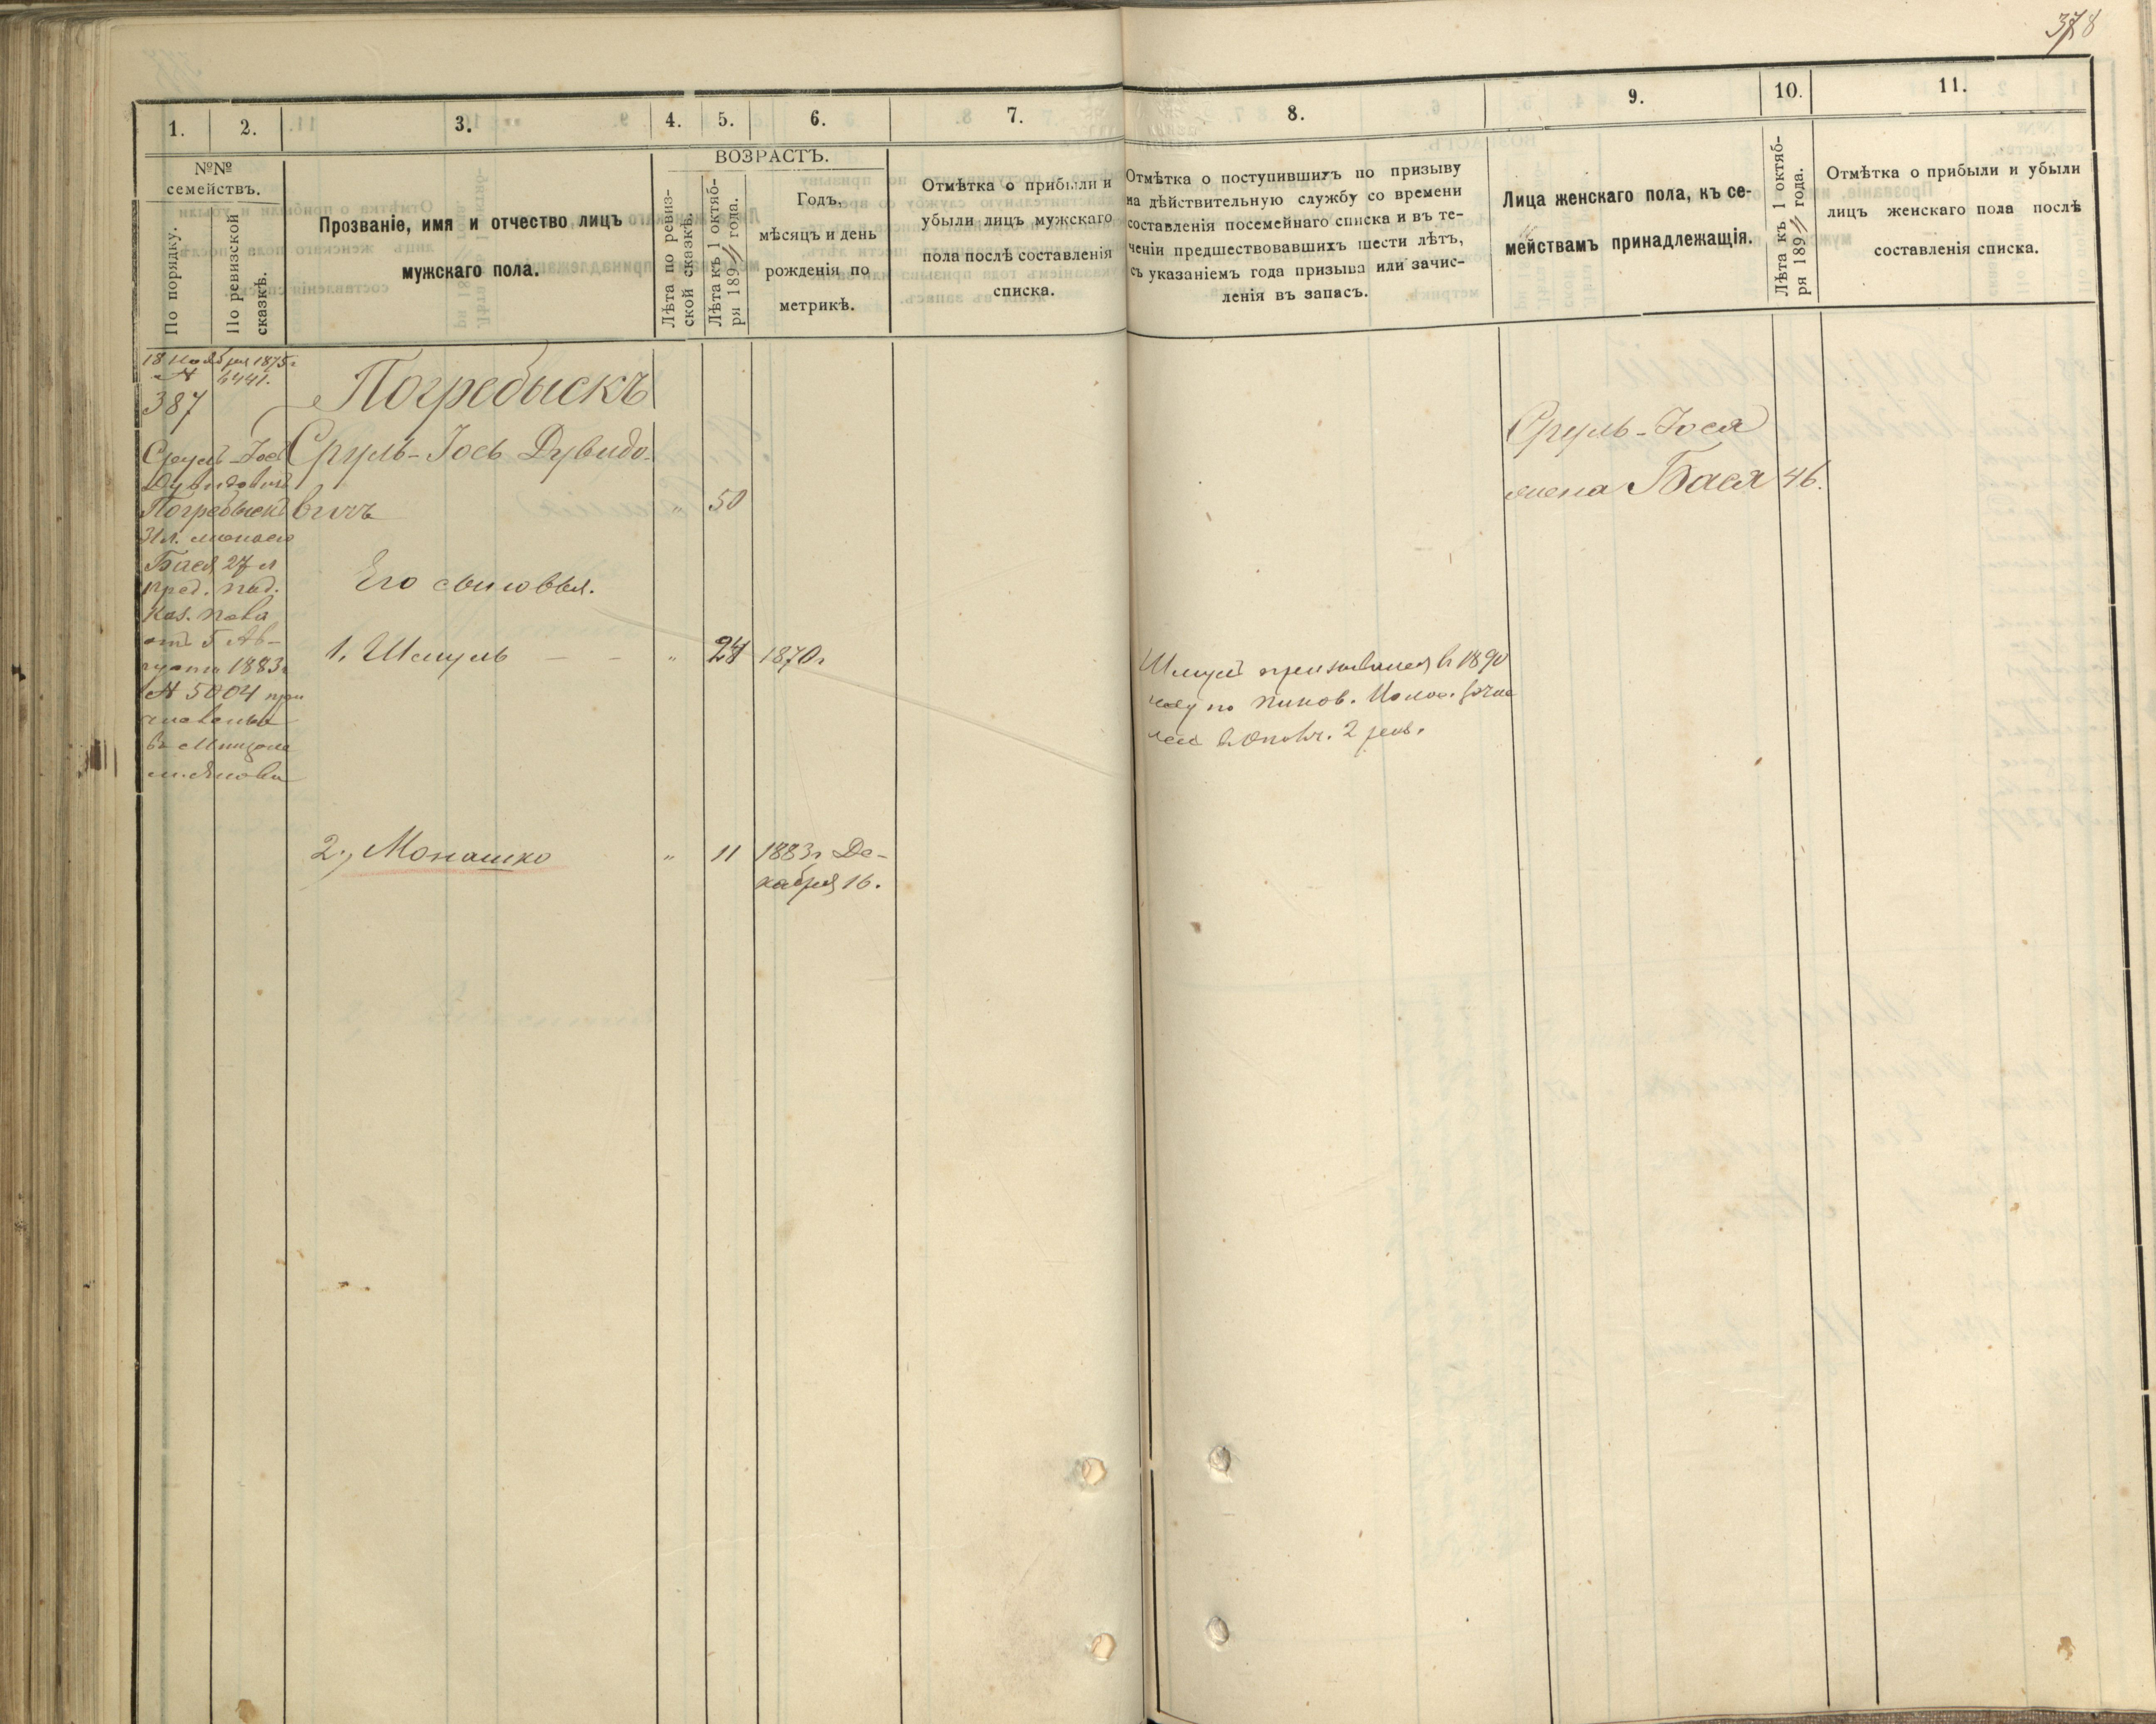 378
1.
2.
3.
4.
5.
6.
7.
8.
9.
10.
11.
№№
семействъ.
По порядку.
По ревизской
сказкѣ.
Прозваніе, имя и отчество лицъ
мужскаго пола.
Лѣта по ревиз-
ской сказкѣ.
ВОЗРАСТЪ.
Лѣта къ 1 октяб-
ря 189 года.
Годъ,
мѣсяцъ и день
рожденія по
метрикѣ.
Отмѣтка о прибыли и
убыли лицъ мужскаго
пола послѣ составленія
списка.
Отмѣтка о поступившихъ по призыву
на дѣйствительную службу со времени
составленія посемейнаго списка и въ те-
ченіи предшествовавшихъ шести лѣтъ,
съ указаніемъ года призыва или зачис-
ленія въ запасъ.
Лица женскаго пола, къ се-
мействамъ принадлежащія.
Лѣта къ 1 октяб-
ря 189 года.
Отмѣтка о прибыли и убыли
лицъ женскаго пола послѣ
составленія списка.
18 Ноября 1875 г
№ 6441.
387
Сруль-Іось
Дувидовичъ
Погребыскъ
31 л. жена его
Бася 27 л
пред. пад.
Каз.
отъ 5 Ав-
густа 1883 г
№ 5004 при
въ
Погребыскъ
Сруль-Іось Дувидо-
вичъ " 50
Его сыновья.
1. Шмуль — — " 24 1870 г
2., Монашко " 11 1883 г Де-
кабря 16.
Шмуль призывался въ 1890
году по
2
Сруль-Іося
жена Бася 46.